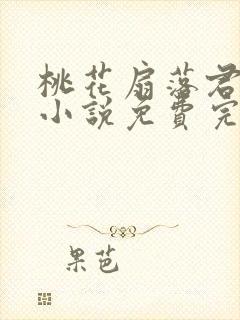 桃花扇落君
小說免費完
果芭